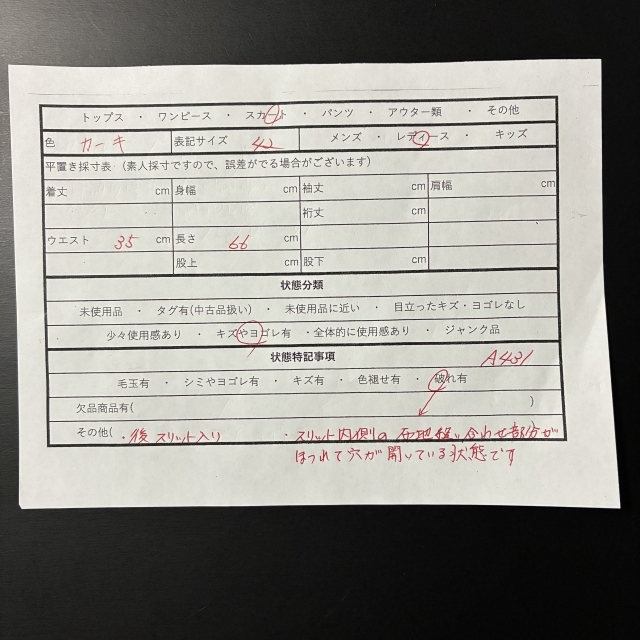 トップス ・ ワンピース ・ スカート ・ パンツ ・ アウター類 ・ その他
色 カーキ 表記サイズ 42 メンズ ・ レディース ・ キッズ
平置き採寸表 (素人採寸ですので、誤差がでる場合がございます)
着丈 cm 身幅 cm 袖丈 cm 肩幅 cm
裄丈 cm
ウエスト 35 cm 長さ 66 cm cm
股上 cm 股下 cm
状態分類
未使用品 ・ タグ有(中古品扱い) ・ 未使用品に近い ・ 目立ったキズ・ヨゴレなし
少々使用感あり ・ キズやヨゴレ有 ・全体的に使用感あり ・ ジャンク品
状態特記事項 A431
毛玉有 ・ シミやヨゴレ有 ・ キズ有 ・ 色褪せ有 ・ 破れ有
欠品商品有( )
その他( ・後スリット入り ・スリット内側の布地縫い合わせ部分が
ほつれて穴が開いている状態です